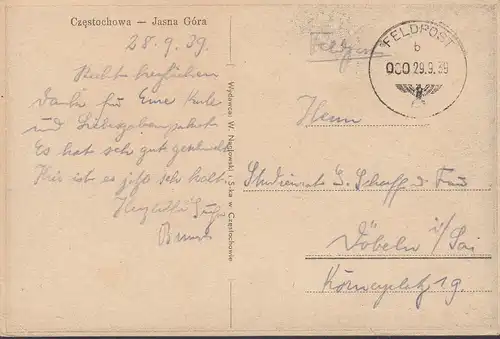 Częstochowa — Jasna Góra
28.9.39.
Recht herzlichen
Dank für Eure Karte
und Liebesgabenpaket
Es hat sehr gut geschmeckt
Hier ist es jetzt sehr kalt.
Herzliche Grüße
Wydawca: W. Nagłowski i S-ka w Częstochowie
Feldpost
FELDPOST
b
000 29.9.39
Herrn
Studienrat S. Schaff u. Frau
Döbeln i/Sa
Körnerplatz 19.